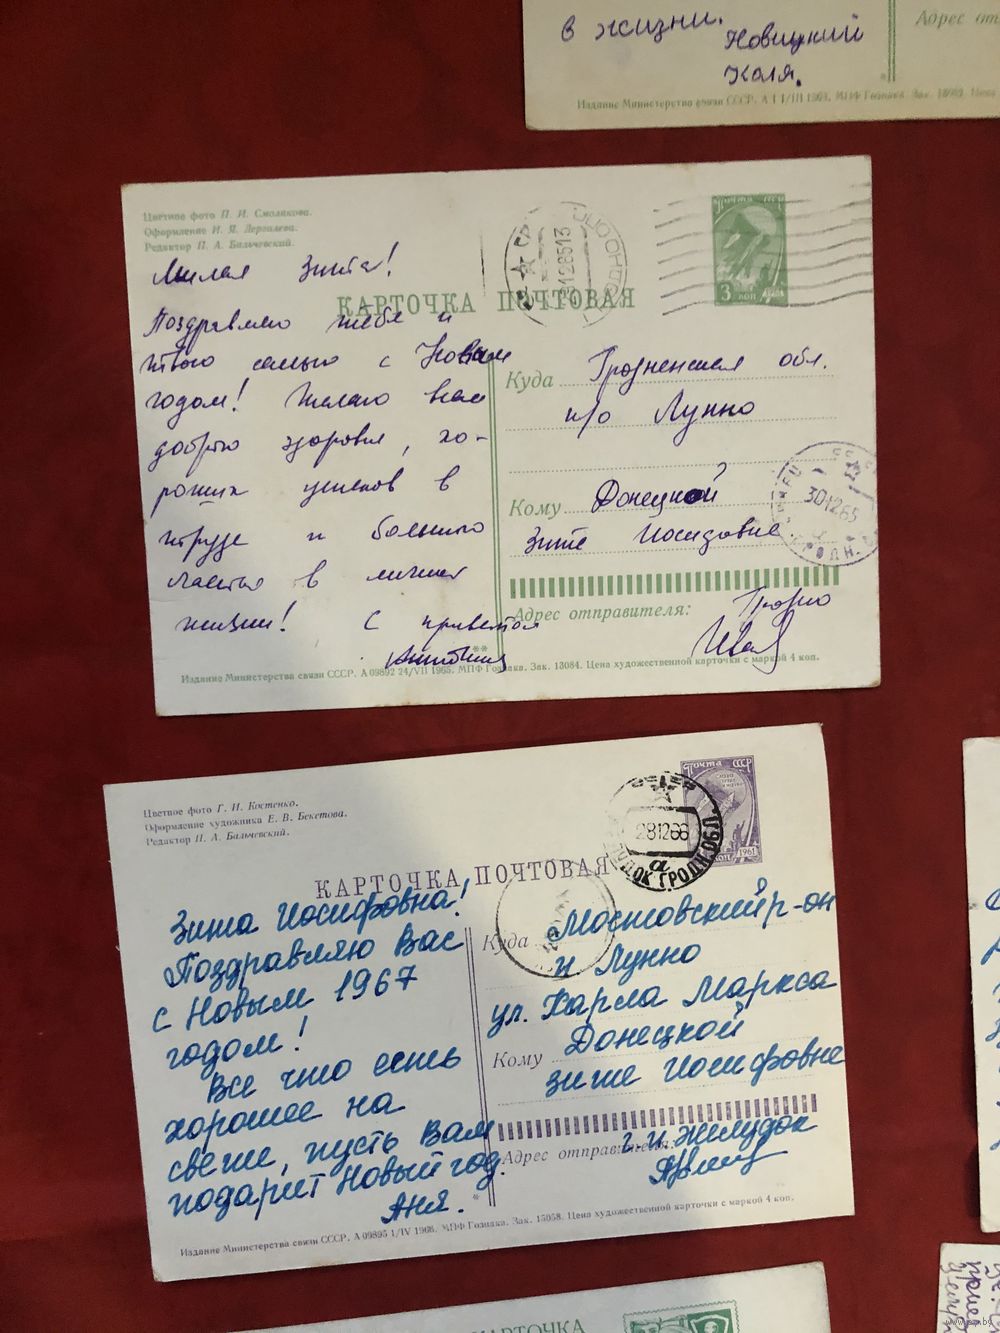 в жизни.
Новицкий
Коля.
Адрес от
Издание Министерства связи СССР.
Цветное фото П. И. Смолякова.
Оформление И. Я. Дергилева.
Редактор П. А. Бальчевский.
КАРТОЧКА ПОЧТОВАЯ
Почта СССР
3 коп
Милая Зита!
Поздравляю тебя и
твою семью с Новым
годом! Желаю вам
доброго здоровья, хо-
роших успехов в
труде и большого
счастья в личной
жизни! С приветом
Куда Гродненская обл.
п/о Лунно
Кому Донецкой
Зите Иосифовне
301265
Адрес отправителя: Гродно
Издание Министерства связи СССР. А 09892 24/VII 1965. МПФ Гознака. Зак. 13084. Цена художественной карточки с маркой 4 коп.
Цветное фото Г. И. Костенко.
Оформление художника Е. В. Бекетова.
Редактор П. А. Бальчевский.
КАРТОЧКА ПОЧТОВАЯ
Почта СССР
1961
281266
а
ГРОДН.ОБЛ.
Зита Иосифовна!
Поздравляю Вас
с Новым 1967
годом!
Все что есть
хорошее на
свете, пусть Вам
подарит Новый год.
Аня.
Куда Мостовский р-он
п Лунно
ул. Карла Маркса
Кому Донецкой
Зите Иосифовне
Адрес отправителя: г.п. Желудок
Издание Министерства связи СССР. А 09895 1/IV 1966. МПФ Гознака. Зак. 15058. Цена художественной карточки с маркой 4 коп.
КАРТОЧКА